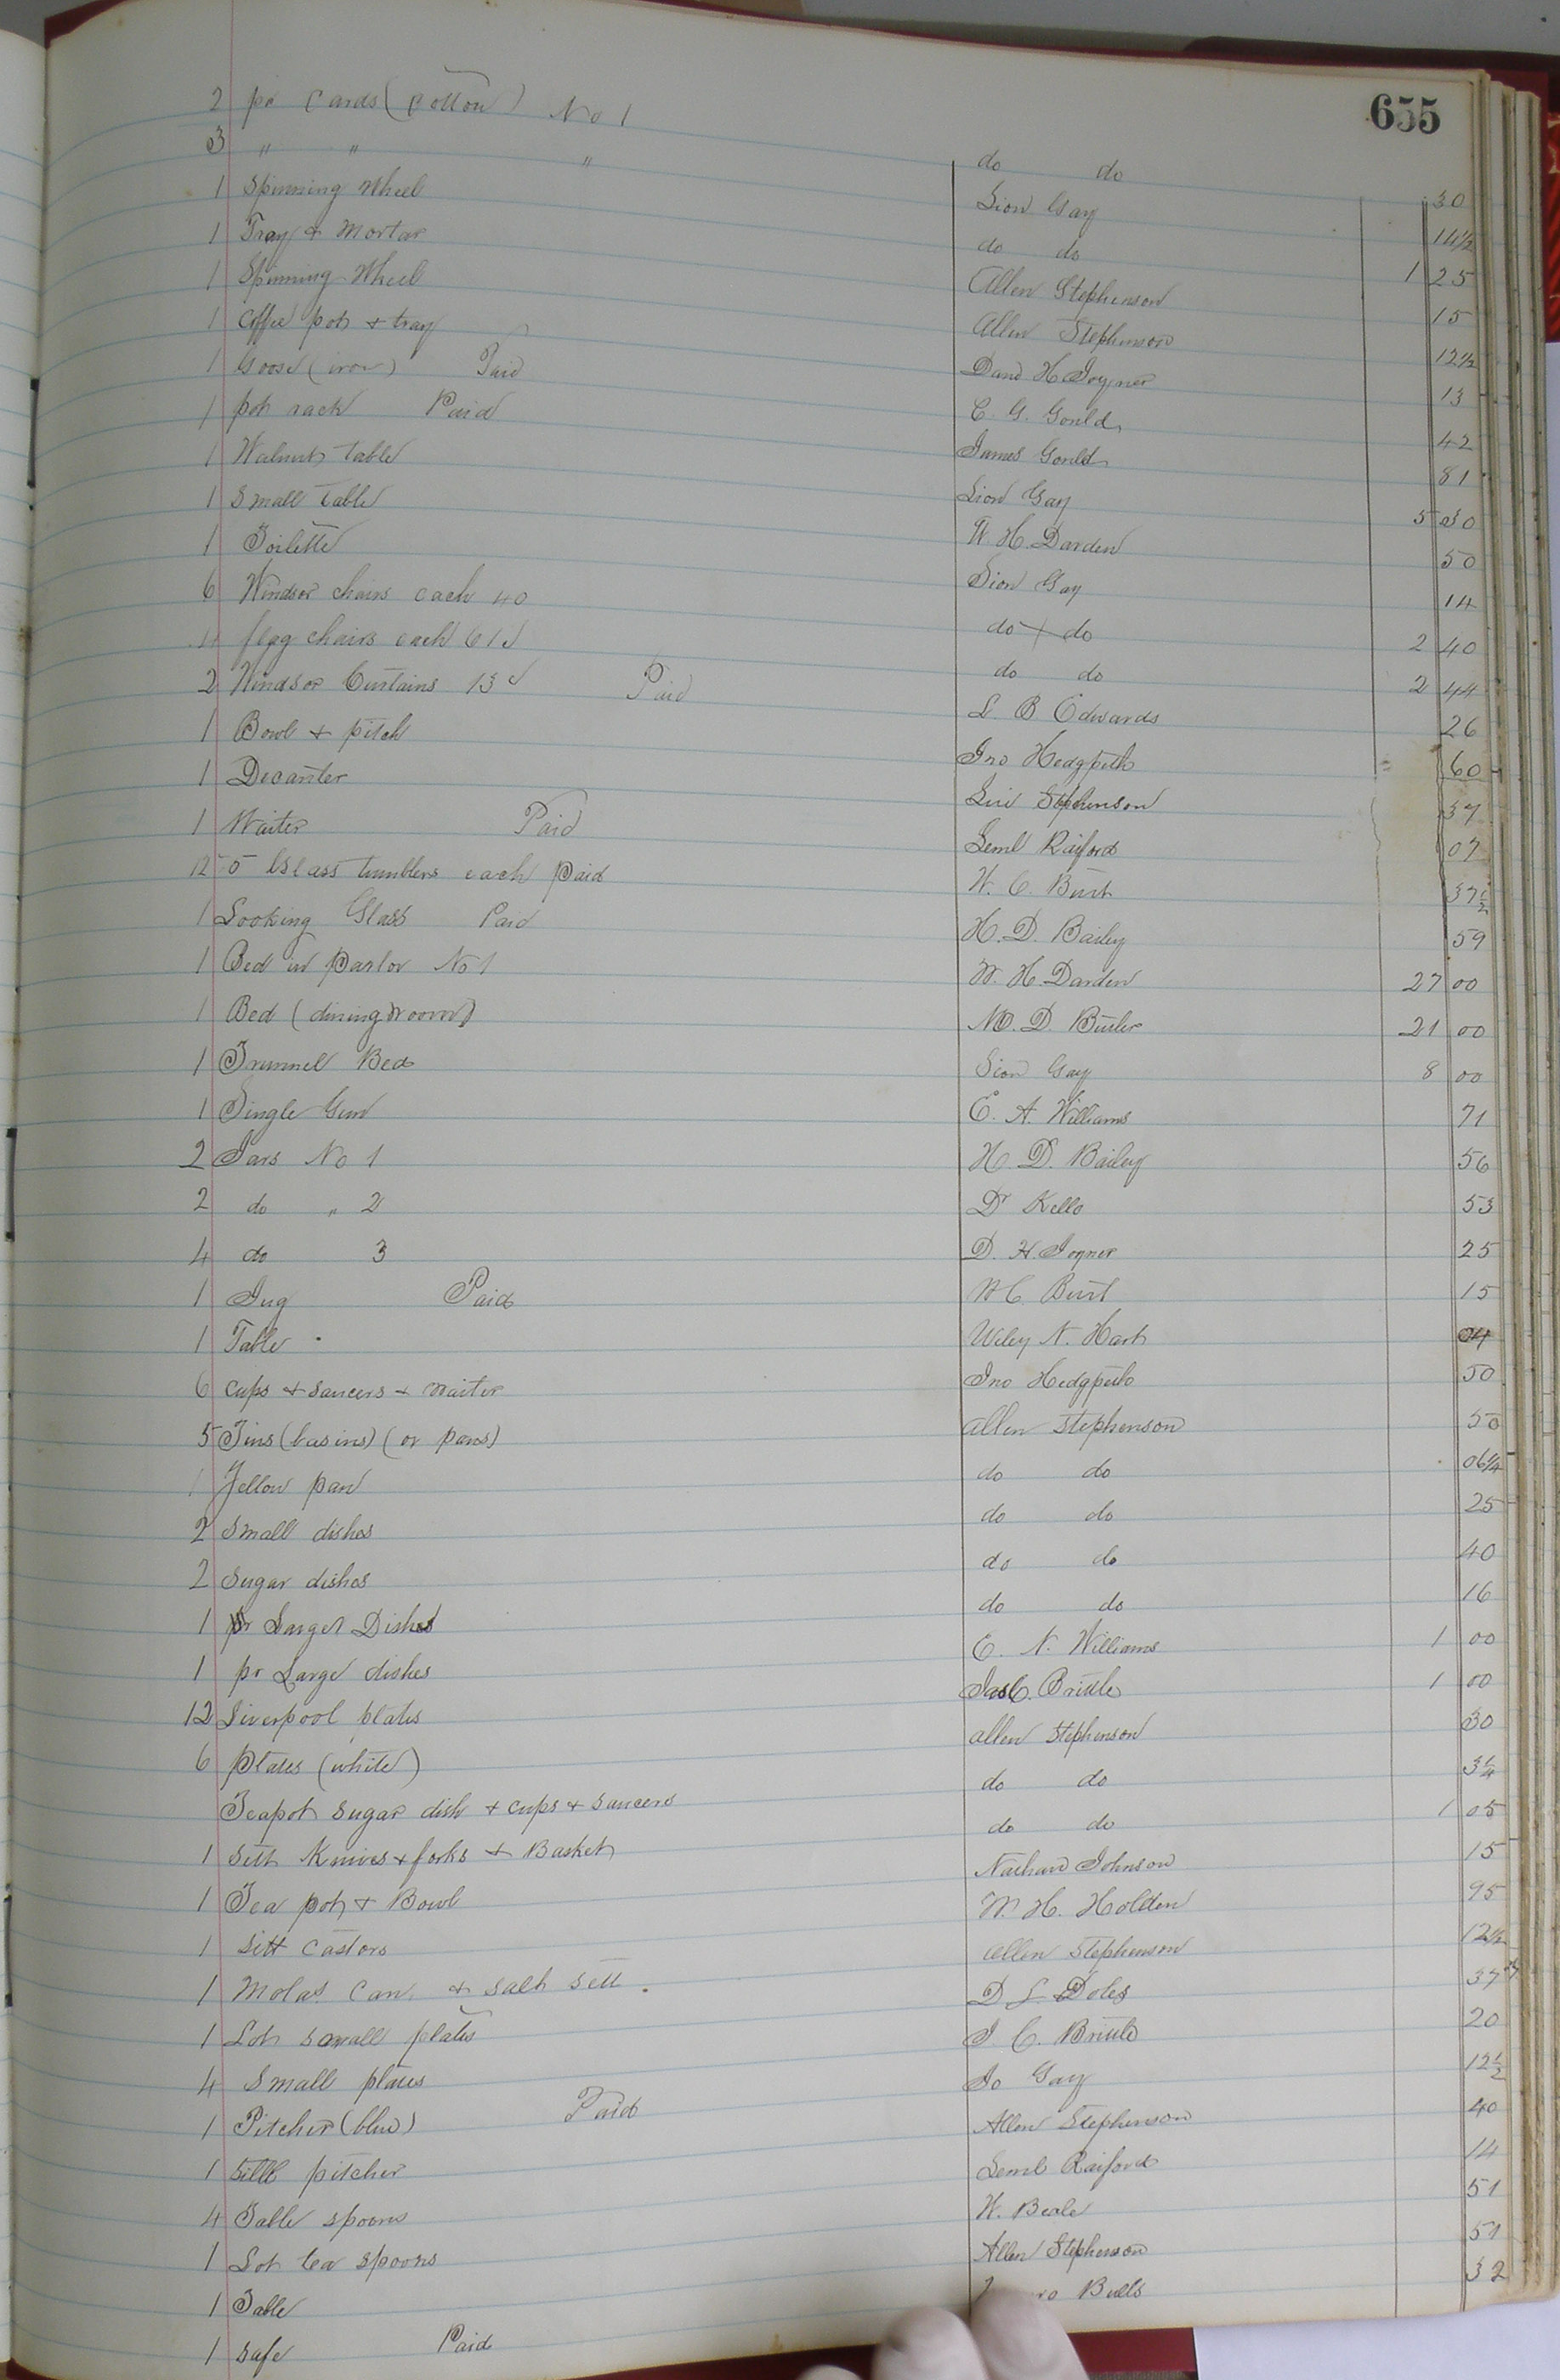 655
2 pr Cards (Cotton) No 1 do do 30
3 " " " Sion Gay 14½
1 Spinning Wheel do do 1 25
1 Tray & Mortar Allen Stephenson 15
1 Spinning Wheel Allen Stephenson 12½
1 Coffee pot & tray H Joyner 13
1 Goose (iron) Paid C. G. Gould 42
1 pot rack Paid James Gould 81
1 Walnut table Sion Gay 5 30
1 Small table W H. Darden 50
1 Toilette Sion Gay 14
6 Windsor chairs each 40 do do 2 40
4 flag chairs each 61 do do 2 44
2 Windsor Curtains 13 Paid L B Edwards 26
1 Bowl & pitch Jno Hedgpeth 60
1 Decanter Levi Stephenson 37
1 Waiter Paid Leml Raiford 07
12 Glass tumblers each Paid W. C. Burt 37½
1 Looking Glass Paid H. D. Bailey 59
1 Bed in parlor No 1 W. H. Darden 27 00
1 Bed (dining room) M. D. Butler 21 00
1 Trunnel Bed Sion Gay 8 00
1 Single Gun E. A. Williams 71
2 Jars No 1 H. D. Bailey 56
2 do " 2 Dr Kello 53
4 do 3 D. H. Joyner 25
1 Jug Paid W C Burt 15
1 Table Wiley N. Hart 04
6 cups & saucers & waiter Jno Hedgpeth 50
5 Tins (basins) (or pans) Allen Stephenson 50
1 Yellow pan do do 06¼
2 Small dishes do do 25
2 Sugar dishes do do 40
1 pr Larger Dishes do do 16
1 pr Large dishes E. N. Williams 1 00
12 Liverpool plates Jas C. Brittle 1 00
6 plates (white) allen Stephenson 30
Teapot sugar dish & cups & saucers do do 3¼
1 Sett Knives & forks & Basket do do 1 05
1 Tea pot & Bowl Nathan Johnson 15
1 Sett Castors W. H. Holden 95
1 Molas Can & salt sett allen Stephenson 12½
1 Lot small plates D L Doles 37
4 Small plates J C. Brittle 20
1 Pitcher (blue) Paid Jo Gay 12½
1 little pitcher Allen Stephenson 40
4 Table spoons Leml Raiford 14
1 Lot tea spoons W. Beale 51
1 Table Allen Stephenson 51
1 Safe Paid 32